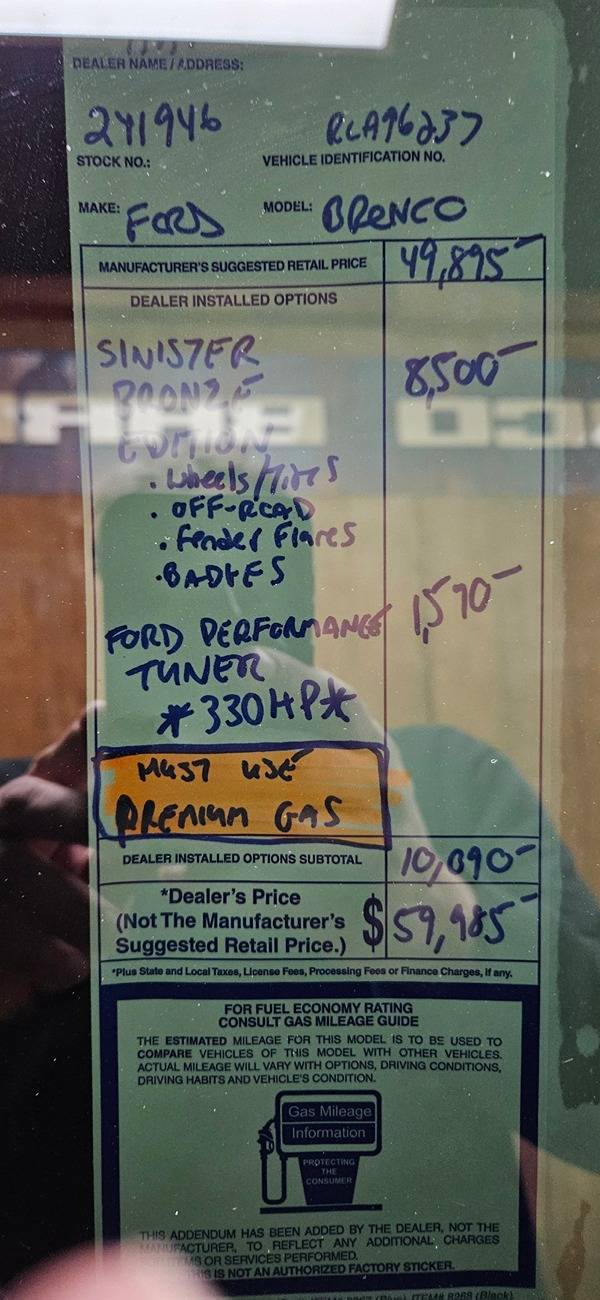 DEALER NAME / ADDRESS:
241946
RLA96237
STOCK NO.:
VEHICLE IDENTIFICATION NO.
MAKE: FORD MODEL: BRONCO
MANUFACTURER'S SUGGESTED RETAIL PRICE 49,895-
DEALER INSTALLED OPTIONS
SINISTER 8,500-
BRONZE
EDITION
• Wheels/Tires
• OFF-ROAD
• Fender Flares
• BADGES
FORD PERFORMANCE 1,590-
TUNER
*330HP*
MUST USE
PREMIUM GAS
DEALER INSTALLED OPTIONS SUBTOTAL 10,090-
*Dealer's Price
(Not The Manufacturer's $59,985-
Suggested Retail Price.)
*Plus State and Local Taxes, License Fees, Processing Fees or Finance Charges, if any.
FOR FUEL ECONOMY RATING
CONSULT GAS MILEAGE GUIDE
THE ESTIMATED MILEAGE FOR THIS MODEL IS TO BE USED TO
COMPARE VEHICLES OF THIS MODEL WITH OTHER VEHICLES.
ACTUAL MILEAGE WILL VARY WITH OPTIONS, DRIVING CONDITIONS,
DRIVING HABITS AND VEHICLE'S CONDITION.
Gas Mileage
Information
PROTECTING
THE
CONSUMER
THIS ADDENDUM HAS BEEN ADDED BY THE DEALER, NOT THE
MANUFACTURER, TO REFLECT ANY ADDITIONAL CHARGES
ITEMS OR SERVICES PERFORMED.
THIS IS NOT AN AUTHORIZED FACTORY STICKER.
ITEM# 8268 (Black)